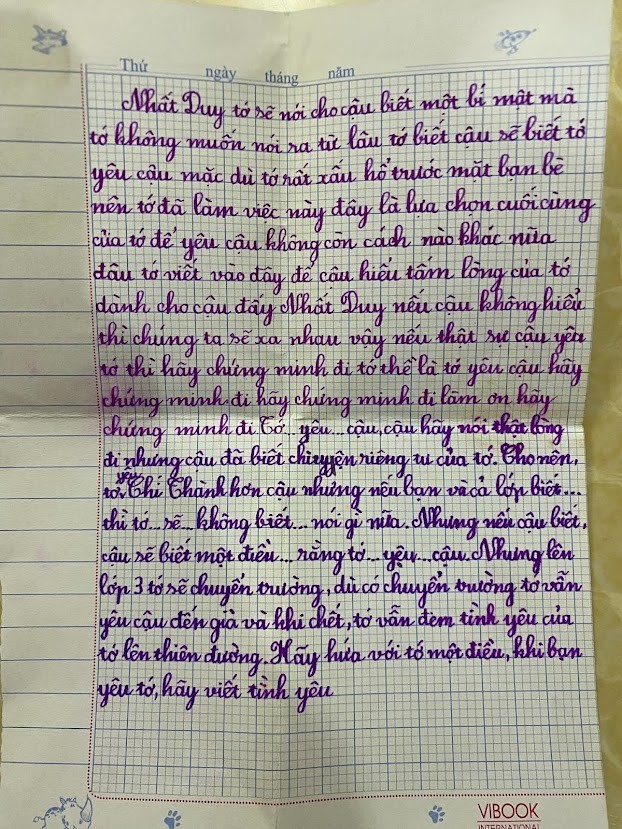 Thứ ngày tháng năm
Nhất Duy tớ sẽ nói cho cậu biết một bí mật mà
tớ không muốn nói ra từ lâu tớ biết cậu sẽ biết tớ
yêu cậu mặc dù tớ rất xấu hổ trước mặt bạn bè
nên tớ đã làm việc này đây là lựa chọn cuối cùng
của tớ để yêu cậu không còn cách nào khác nữa
đâu tớ viết vào đây để cậu hiểu tấm lòng của tớ
dành cho cậu đấy Nhất Duy nếu cậu không hiểu
thì chúng ta sẽ xa nhau vậy nếu thật sự cậu yêu
tớ thì hãy chứng minh đi tớ thề là tớ yêu cậu hãy
chứng minh đi hãy chứng minh đi làm ơn hãy
chứng minh đi Tớ... yêu... cậu, cậu hãy nói thật lòng
đi nhưng cậu đã biết chuyện riêng tư của tớ. Cho nên,
tớ yêu Chí Thành hơn cậu nhưng nếu bạn và cả lớp biết...
thì tớ... sẽ... không biết... nói gì nữa. Nhưng nếu cậu biết,
cậu sẽ biết một điều... rằng tớ... yêu... cậu. Nhưng lên
lớp 3 tớ sẽ chuyển trường, dù có chuyển trường tớ vẫn
yêu cậu đến già và khi chết, tớ vẫn đem tình yêu của
tớ lên thiên đường. Hãy hứa với tớ một điều, khi bạn
yêu tớ, hãy viết tình yêu
VIBOOK
INTERNATIONAL